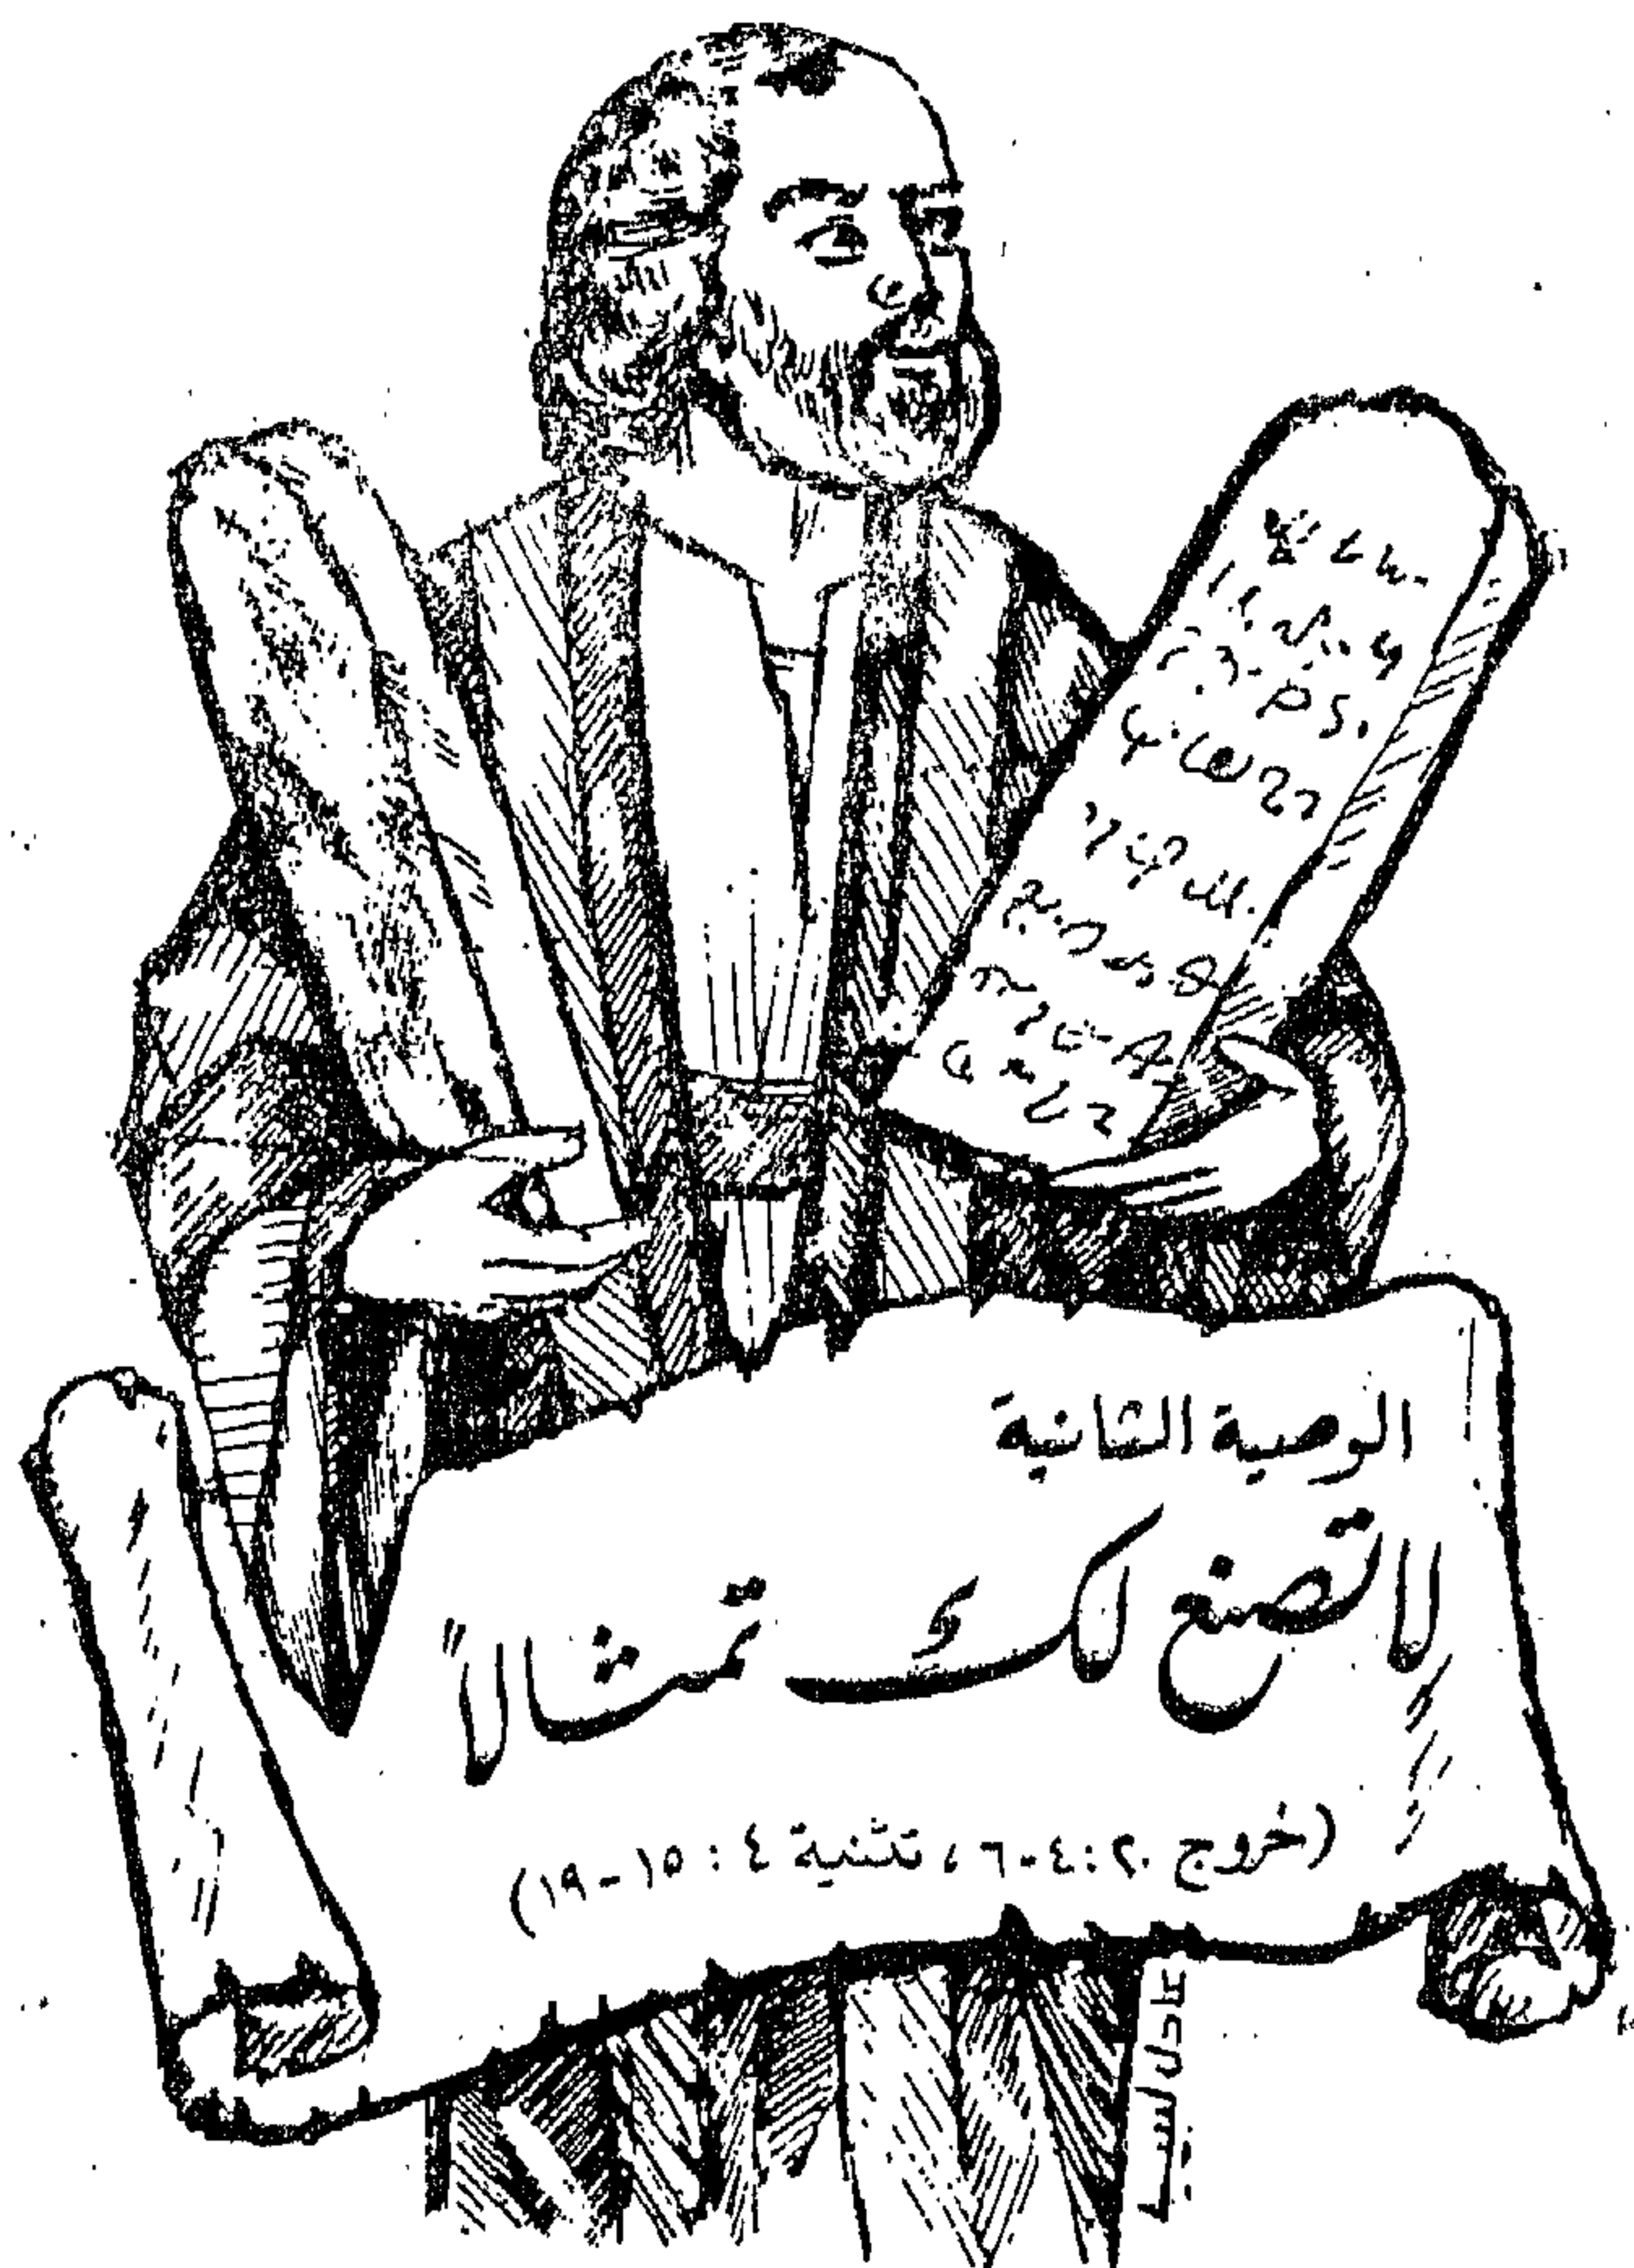 الوصية الثانية
لا تصنع لك تمثالاً
(خروج ٢٠:٤-٦، تثنية ٤:١٥-١٩)